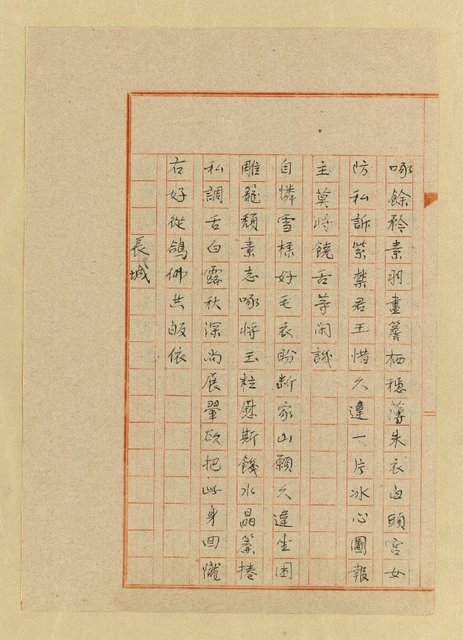 啄餘矜素羽畫簷栖穩薄朱衣白頭宮女
防私訴紫禁君王惜久違一片冰心圖報
主莫將饒舌等閑譏
自憐雪樣好毛衣盼斷家山願久違坐困
雕籠頹素志啄將玉粒慰斯饑水晶簾捲
私調舌白露秋深尚展翬欲把此身回懺
右好從鴿佛共皈依
長城